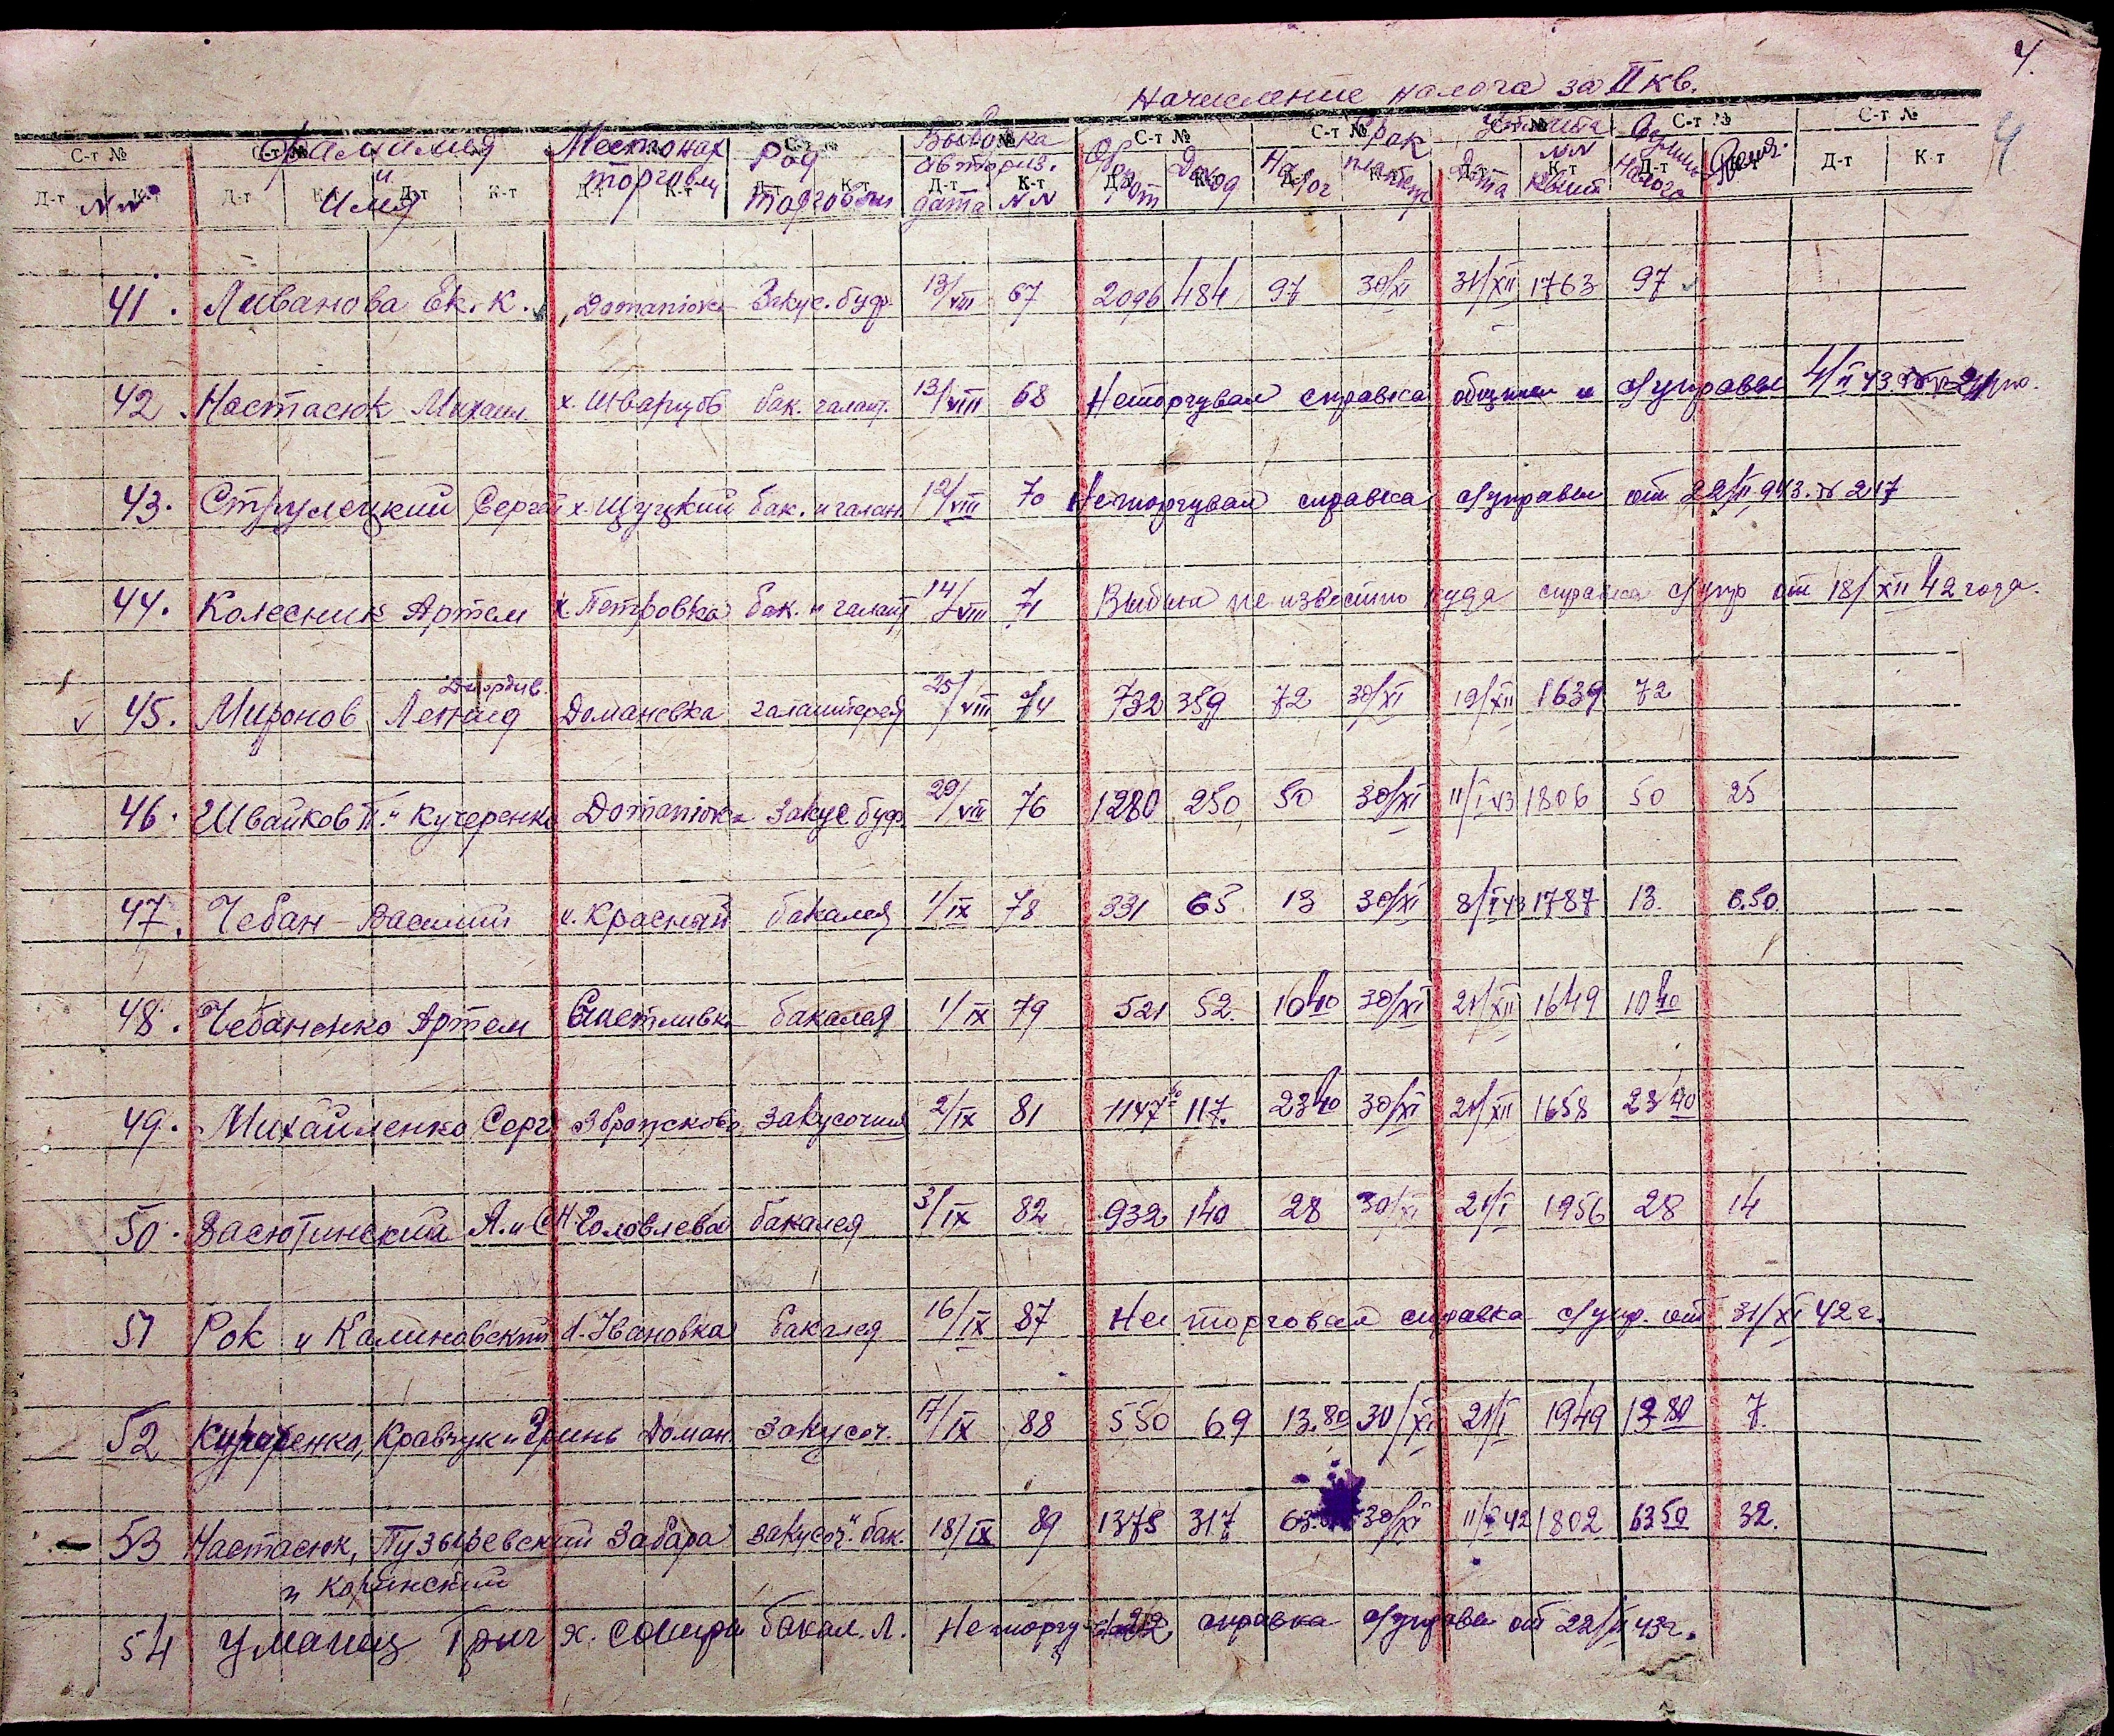 4.
Начисление налога за II кв.
С-т № С-т № С-т № С-т № С-т № С-т № С-т № С-т № С-т № С-т №
Фамилия Местонах Род Выборка Оборот Доход Налог Срок Уплата Сумма Пеня.
и торговли торговли авториз. платежа Дата NN Налога
NN Имя дата NN квит
Д-т К-т Д-т К-т Д-т К-т Д-т К-т Д-т К-т Д-т К-т Д-т К-т Д-т К-т Д-т К-т Д-т К-т Д-т К-т
41. Ливанова Ек. К. Domaniovca Закус. буф. 13/VIII 67 2096 484 97 30/XI 31/XII 1763 97
42. Настасюк Михаил х. Шварцов бак. галант. 13/VIII 68 Неторгувал справка общины и с/управы 4/II 43
43. Струлецкий Сергей х. Щуцкий бак. и галан. 12/VIII 70 Неторгувал справка с/управы от 22/II 943. № 217
44. Колесник Артем х. Петровка бак. и галант 14/VIII 71 Выбыл не известно куда справка с/упр от 18/XII 42 года.
45. Миронов Леонид Домановка галантерея 25/VIII 74 732 359 72 30/XI 19/XII 1639 72
46. Швайков П. и Кучеренко Domaniovca Закус буф. 29/VIII 76 1280 250 50 30/XI 11/I 43 1806 50 25
47. Чебан Василий х. Красный бакалея 1/IX 78 331 65 13 30/XI 8/I 43 1787 13 6.50
48. Чебаненко Артем Счастливка бакалея 1/IX 79 521 52. 10 40 30/XI 21/XII 1649 10 40
49. Михайленко Серг Збрашково закусочная 2/IX 81 1147 117. 23 40 30/XI 21/XII 1658 23 40
50. Васютинский А. и С. Н. Головлева бакалея 3/IX 82 932 140 28 30/XI 21/I 1956 28 14
51 Рок и Калиновский А. Ивановка бакалея 16/IX 87 Не торговал справка с/упр. от 31/XI 42 г.
52 Кучеренко, Кравчук и Гринь Доман. закусоч. 17/IX 88 550 69 13.80 30/XI 21/I 1949 13 80 7.
53 Настасюк, Пузыревский Забара закусоч. бак. 18/IX 89 1375 317 63. 30/XI 11/I 42 1802 63 50 32.
и Коринский
54 Уманец Григ х. бакал. Л. Неторгувал справка с/управы от 22/II 43 г.